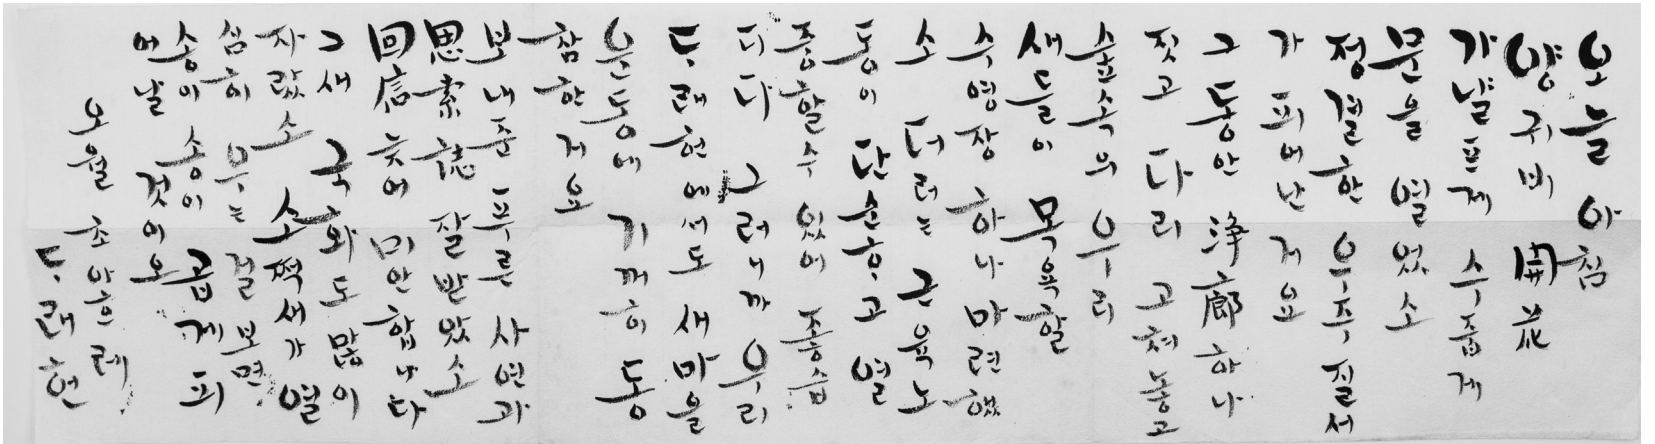 오늘 아침
양귀비 開花
가냘프게 수줍게
문을 열었소
정결한 우주 질서
가 피어난 거요
그동안 浄廊 하나
짓고 다리 고쳐놓고
숲속의 우리
새들이 목욕할
수영장 하나 마련했
소 더러는 근육노
동이 단순하고 열
중할 수 있어 좋습
디다 그러니까 우리
두래헌에서도 새마을
운동에 기꺼히 동
참한 거요
보내준 푸른 사연과
思索誌 잘 받았소
回信 늦어 미안합니다
그새 국화도 많이
자랐소 소쩍새가 열
심히 우는 걸 보면
송이 송이 곱게 피
어날 것이오
오월 초아흐레
두래헌